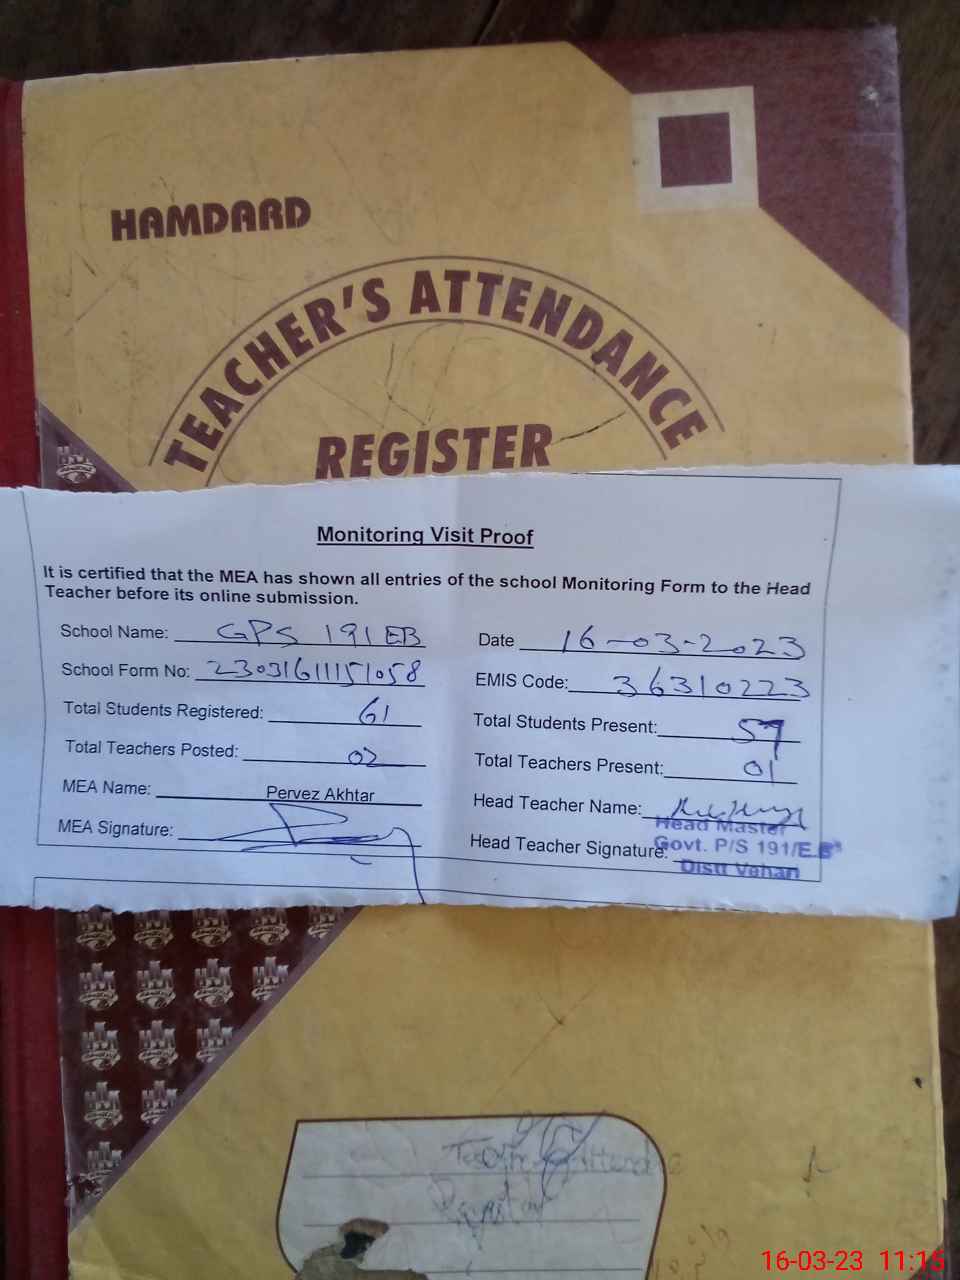 HAMDARD
TEACHER'S ATTENDANCE
REGISTER
Monitoring Visit Proof
It is certified that the MEA has shown all entries of the school Monitoring Form to the Head
Teacher before its online submission.
School Name: GPS 191 EB
Date 16-03-2023
School Form No: 23031611151058
EMIS Code: 36310223
Total Students Registered: 61
Total Students Present: 57
Total Teachers Posted: 02
Total Teachers Present: 01
MEA Name: Pervez Akhtar
Head Teacher Name:
MEA Signature:
Head Teacher Signature:
Head Master
Govt. P/S 191/E.B
Distt Vehari
16-03-23 11:15